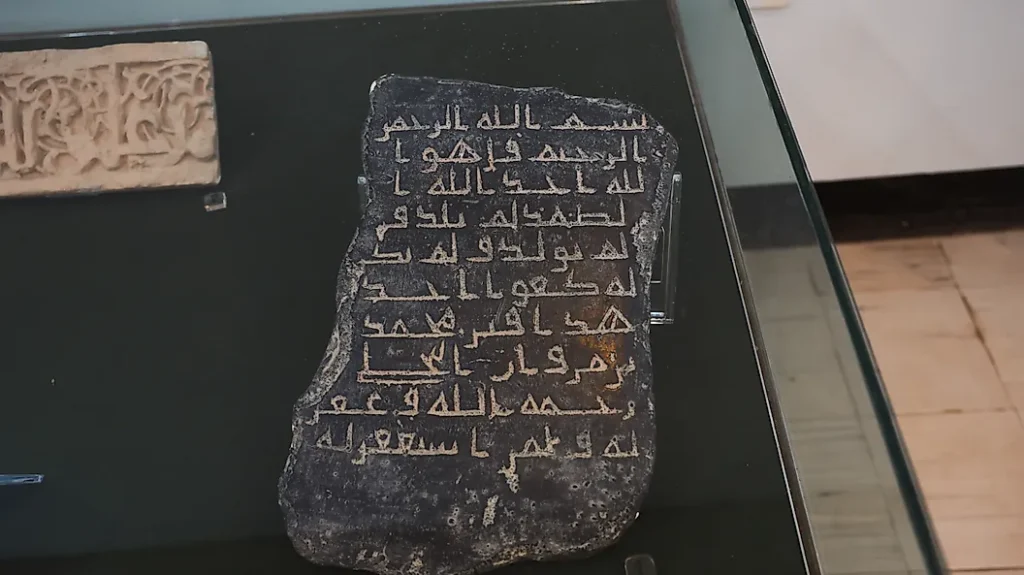 بسم الله الرحمن
الرحيم قل هو ا
لله احد الله ا
لصمد لم يلد و
لم يولد و لم يكن
له كفوا احد
هذا قبر محمد
بن
رحمه الله و غفر
له و لمن استغفر له